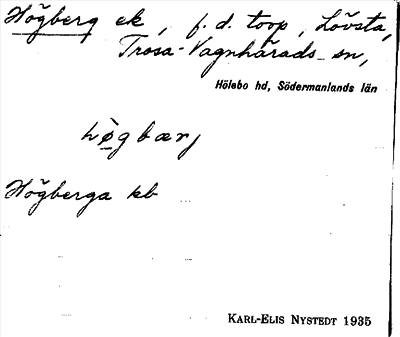 Högberg ek, f. d. torp, Lövsta,
Trosa-Vagnhärads sn,
Hölebo hd, Södermanlands län
Högberga kb
KARL-ELIS NYSTEDT 1935